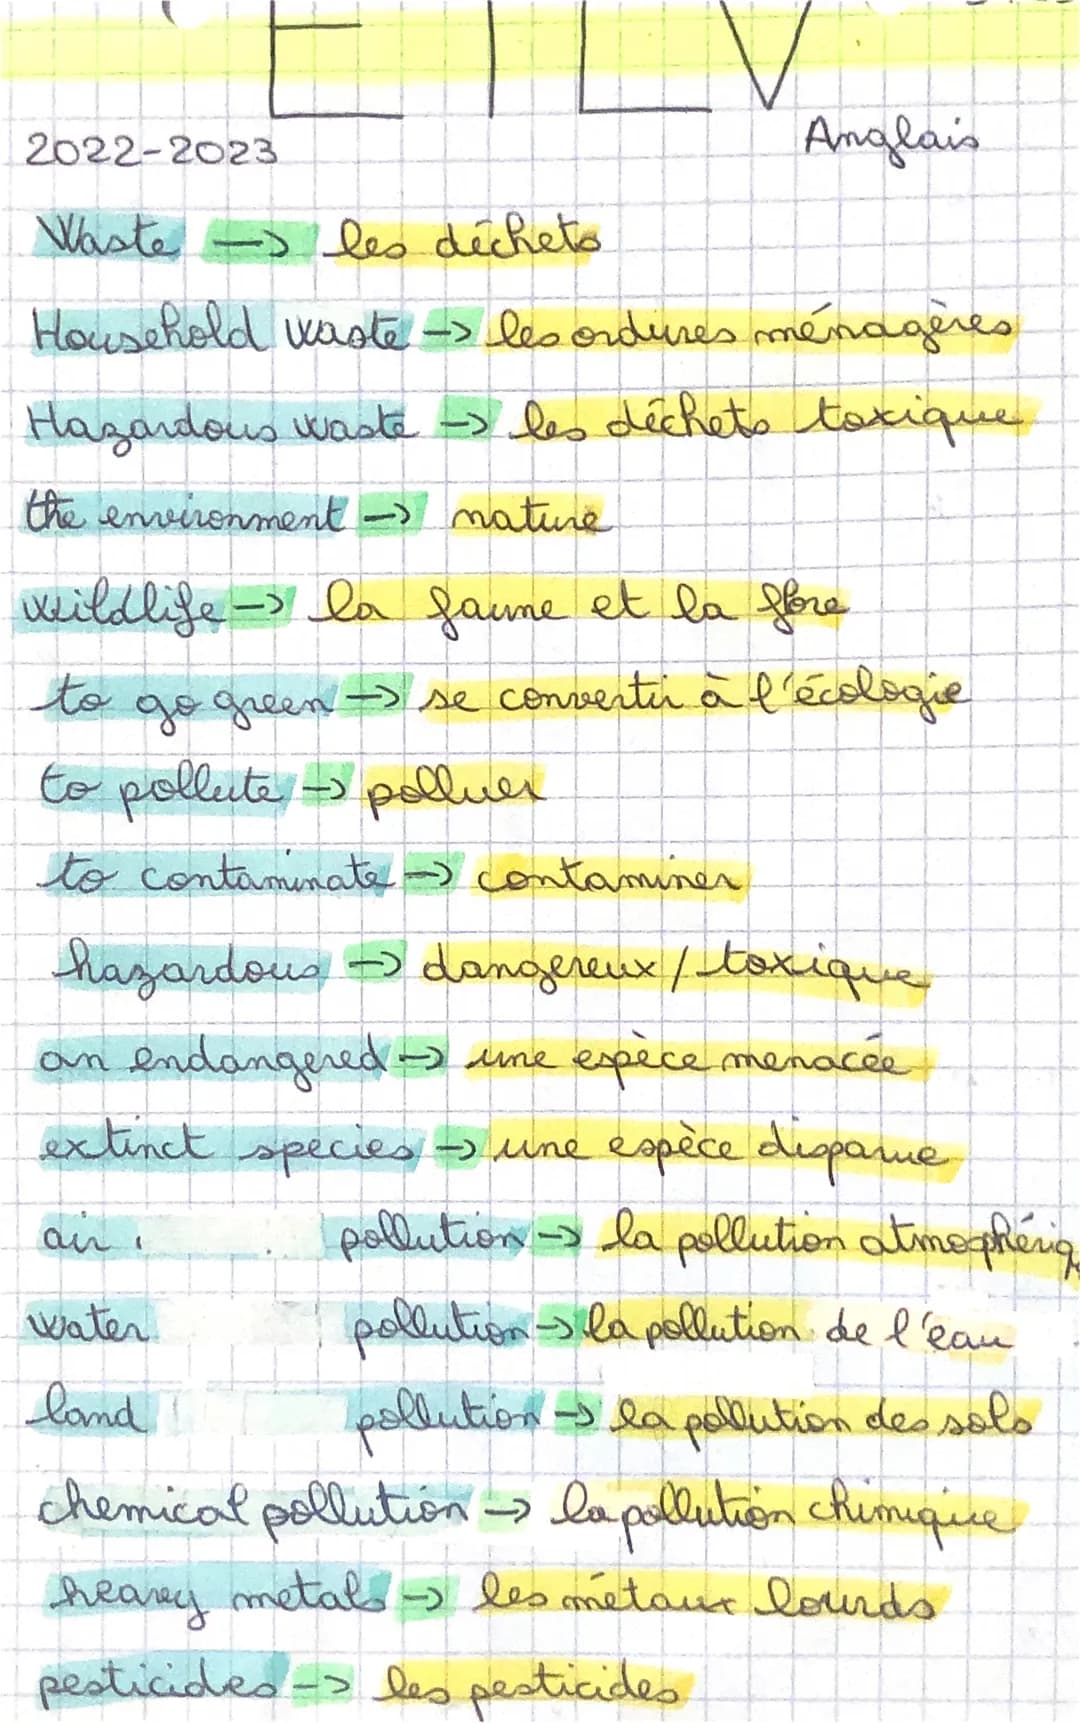 ETLV
2022-2023
Anglais
Waste -> les déchets
Household waste -> les ordures ménagères
Hazardous waste -> les déchets toxique
the environment -> nature
wildlife -> la faune et la flore
to go green -> se convertir à l'écologie
to pollute -> polluer
to contaminate -> contaminer
hazardous -> dangereux / toxique
an endangered -> une espèce menacée
extinct species -> une espèce disparue
air pollution -> la pollution atmosphériq
water pollution -> la pollution de l'eau
land pollution -> la pollution des sols
chemical pollution -> la pollution chimique
heavy metals -> les métaux lourds
pesticides -> les pesticides